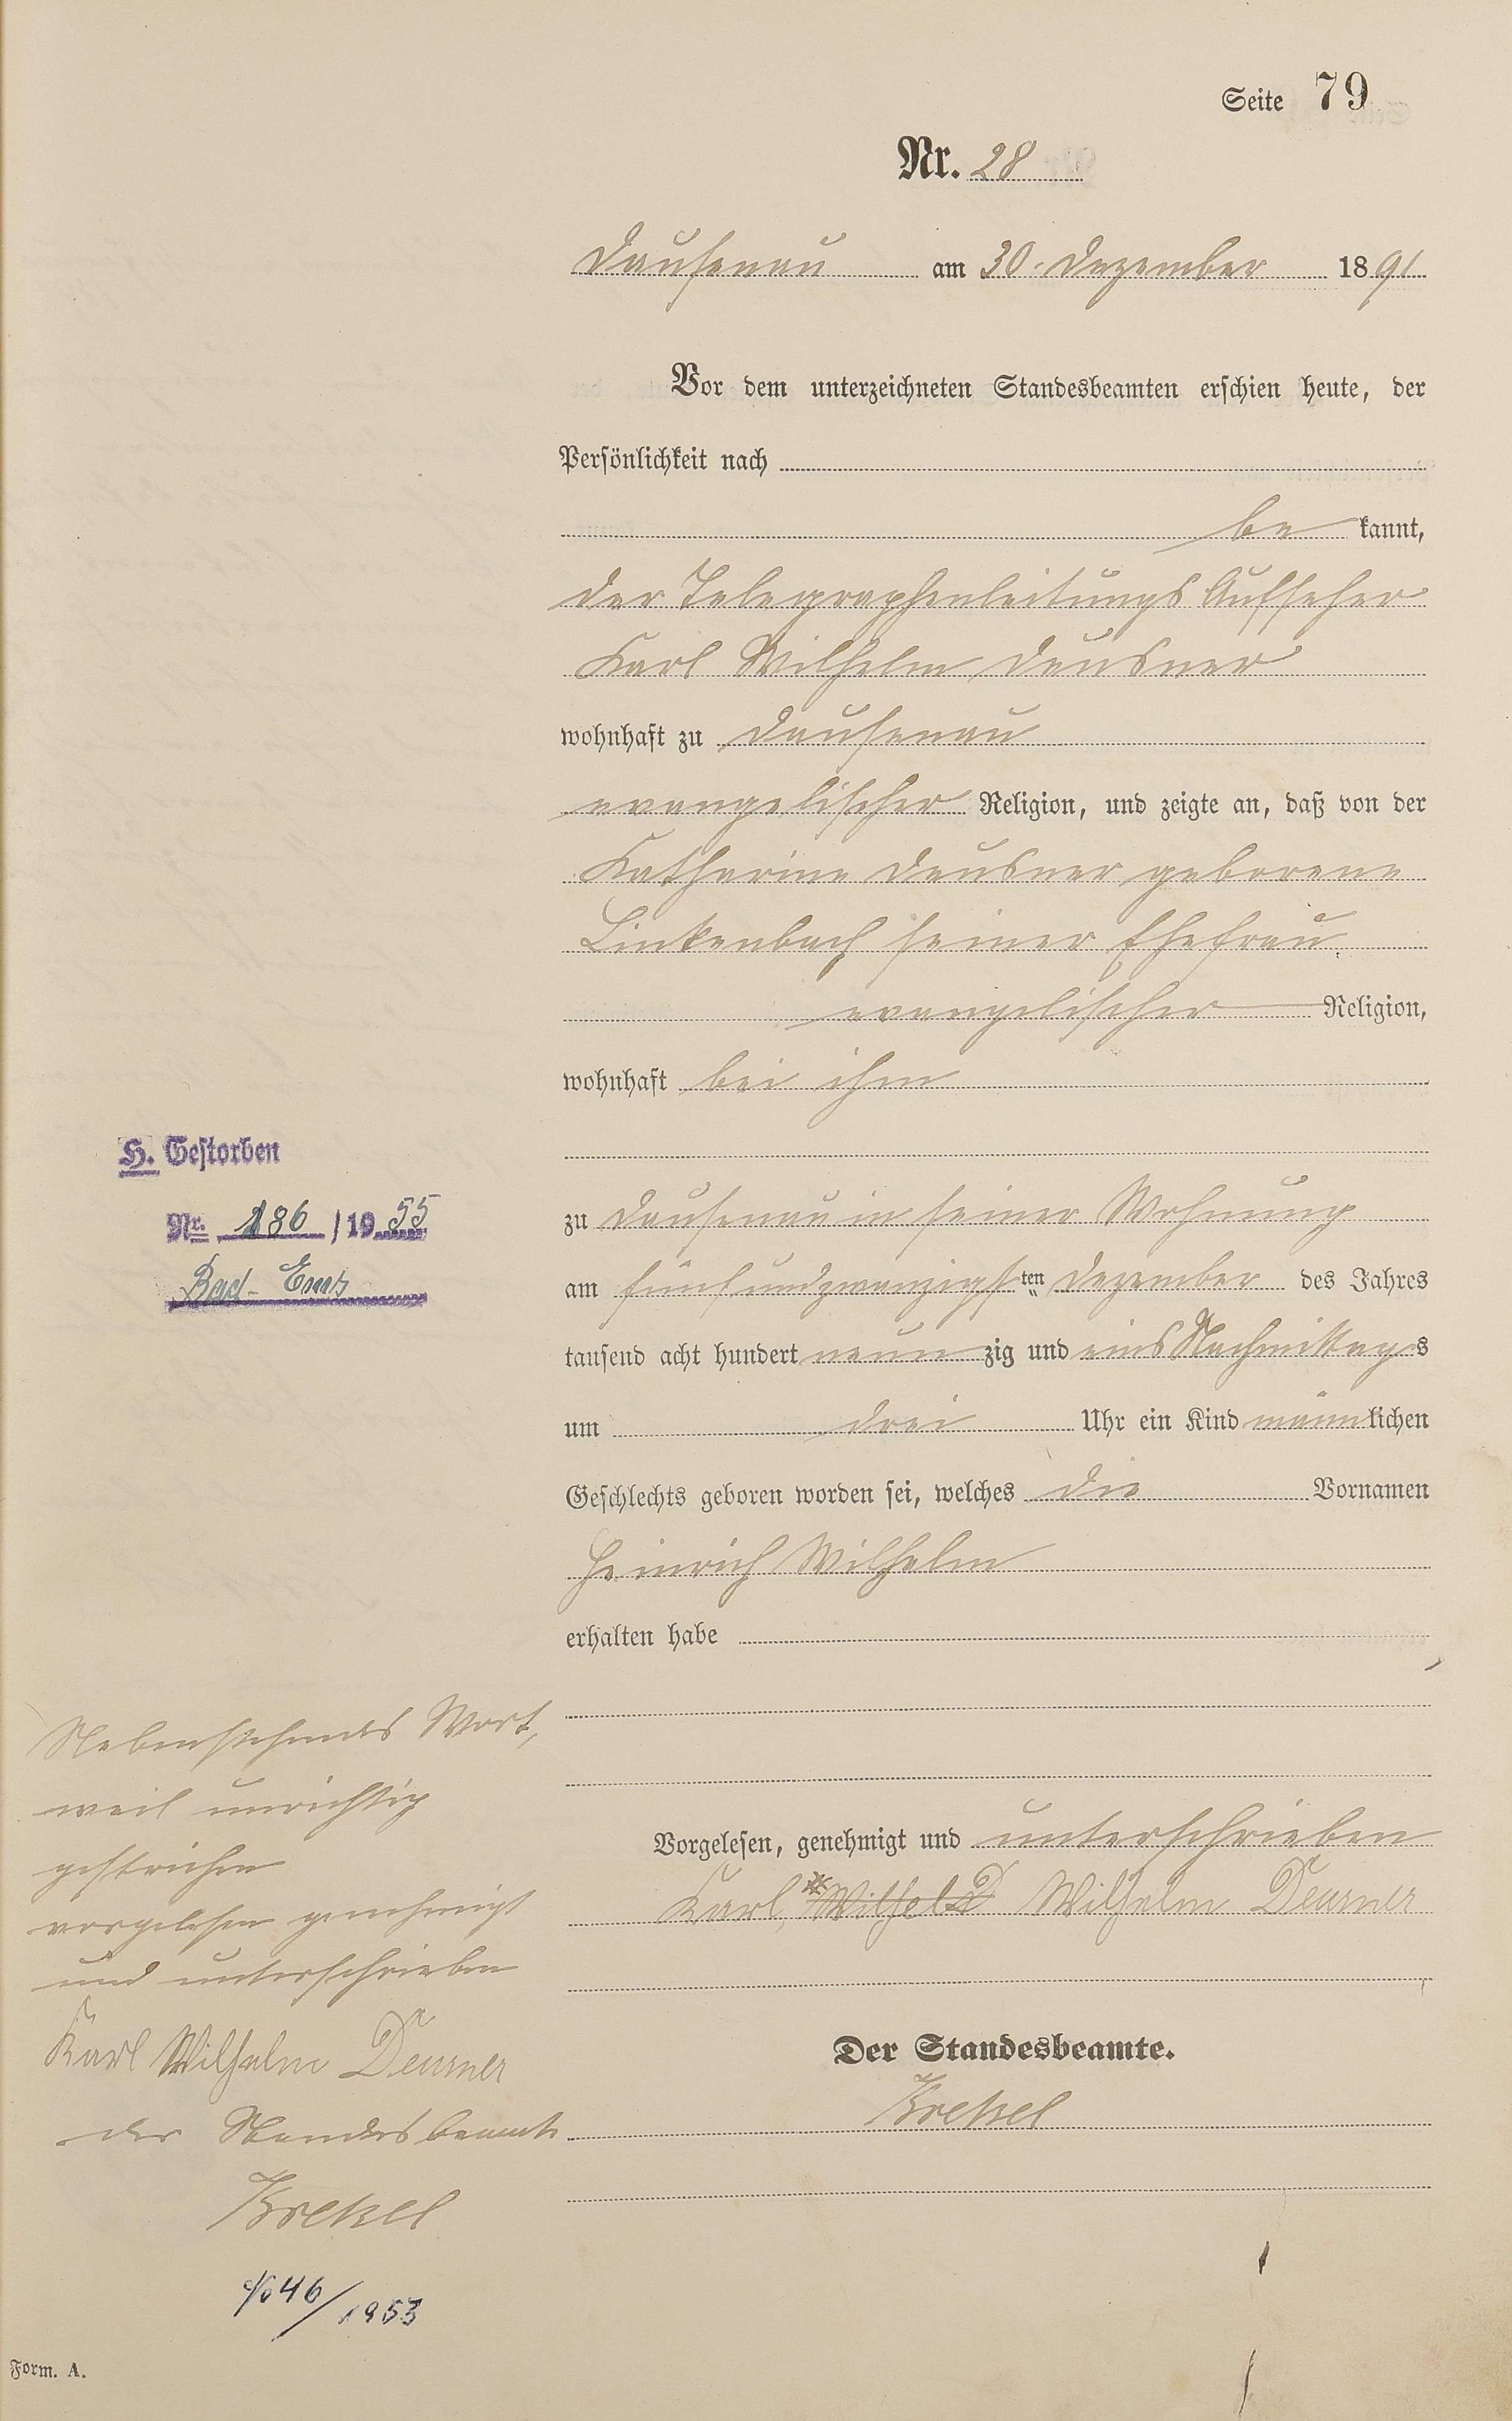 Seite 79
Nr. 28
Dausenau am 30. Dezember 1891
Vor dem unterzeichneten Standesbeamten erschien heute, der
Persönlichkeit nach
be kannt,
der Telegraphenleitungs Aufseher
Karl Wilhelm Deusner
wohnhaft zu Dausenau
evangelischer Religion, und zeigte an, daß von der
Katharine Deusner geborene
Linkenbach seiner Ehefrau,
evangelischer Religion,
wohnhaft bei ihm
zu Dausenau in seiner Wohnung
am fünfundzwanzigsten Dezember des Jahres
tausend acht hundert neunzig und eins Nachmittags
um drei Uhr ein Kind männlichen
Geschlechts geboren worden sei, welches die Vornamen
Heinrich Wilhelm
erhalten habe
Vorgelesen, genehmigt und unterschrieben
Karl, Wilhelm Deusner
Der Standesbeamte.
Krekel
H. Gestorben
Nr. 186 / 1955
Bad-Ems
Nebenstehendes Wort,
weil unrichtig
gestrichen
vorgelesen genehmigt
und unterschrieben
Karl Wilhelm Deusner
der Standesbeamte
Krekel
46/1953
Form. A.